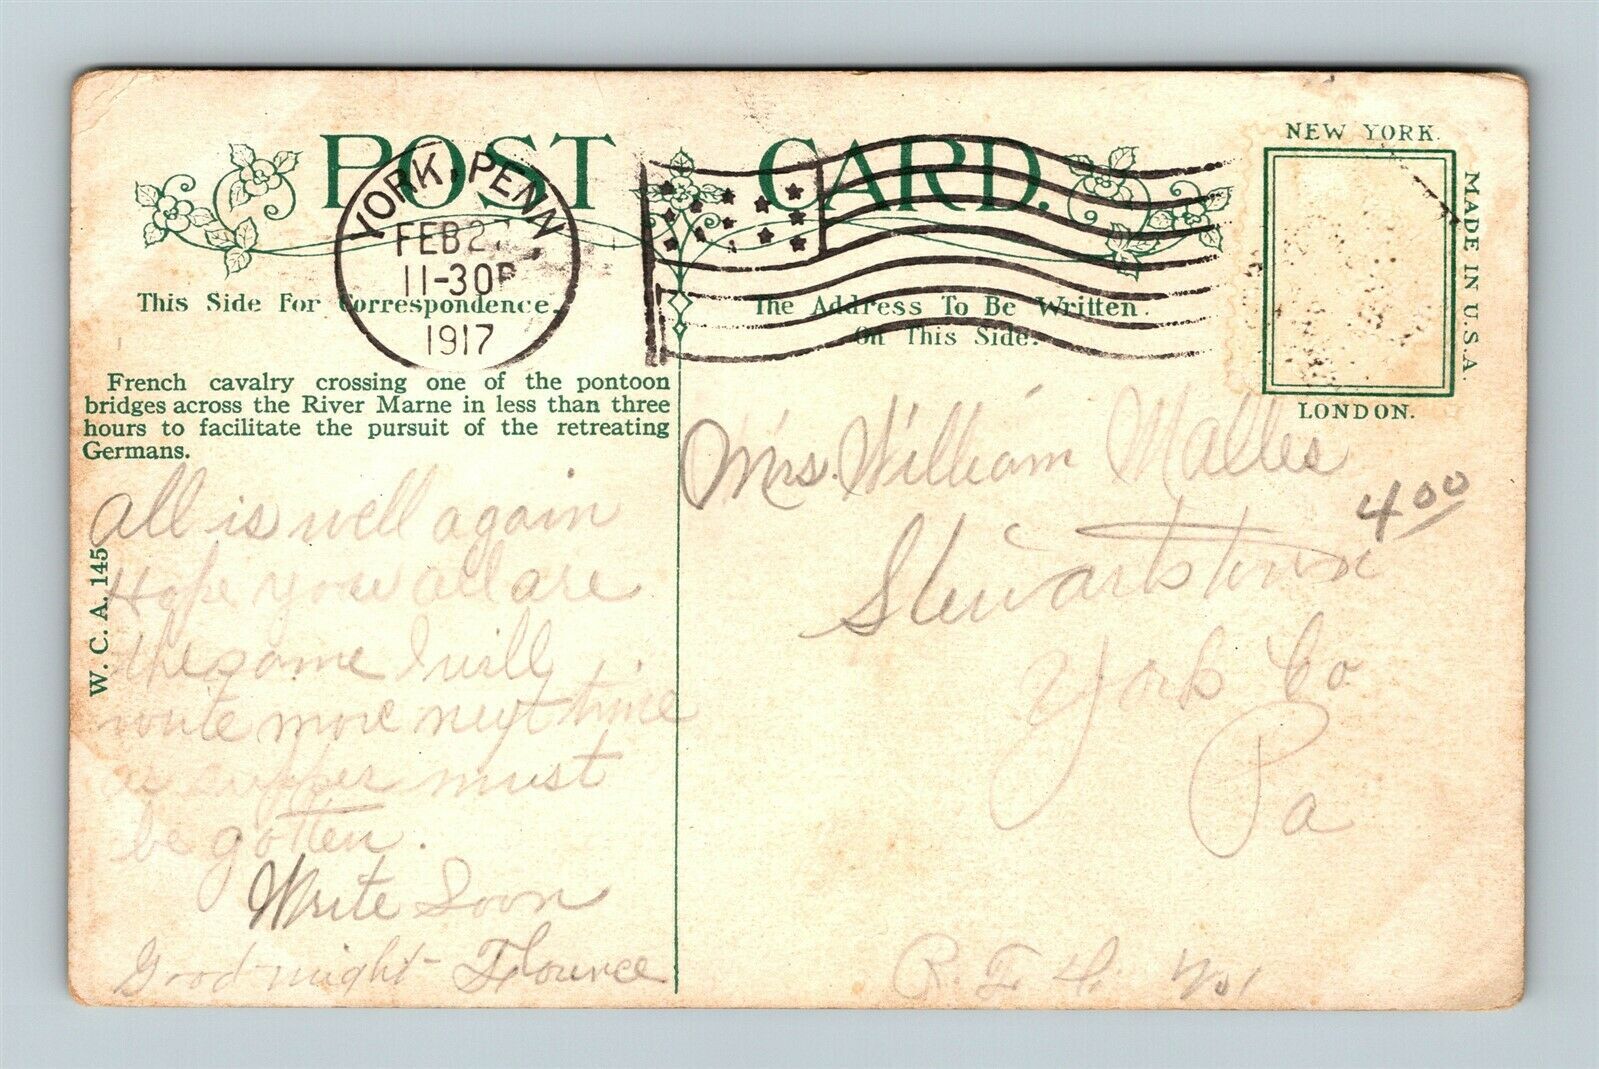 POST CARD.
YORK, PENN
FEB 2
11-30P
1917
This Side For Correspondence.
The Address To Be Written
On This Side.
NEW YORK.
MADE IN U.S.A.
LONDON.
French cavalry crossing one of the pontoon
bridges across the River Marne in less than three
hours to facilitate the pursuit of the retreating
Germans.
W. C. A. 145
All is well again
Hope you all are
the same I will
write more next time
as supper must
be gotten.
Write Soon
Good-night- Flourece
Mrs. William Malles
4 00
Stewartstown
York Co
Pa
R. F. D. No 1